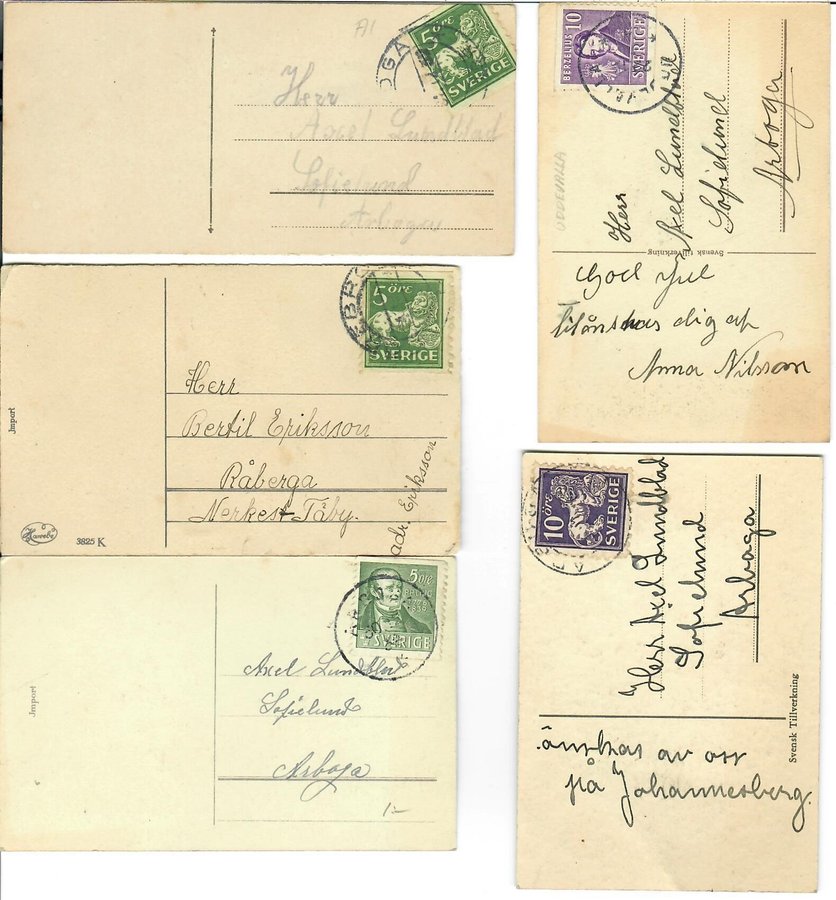 A1
5 ÖRE
SVERIGE
Herr
Axel Lundblad
Sofielund
Arboga
BERZELIUS 10
SVERIGE
UDDEVALLA
Herr
Axel Lundblad
Sofielund
Arboga
Svensk Tillverkning
God Jul
tillönskas dig af
Anna Nilsson
5 ÖRE
SVERIGE
Import
Herr
Bertil Eriksson
Råberga
Nerkes-Täby.
adr. Eriksson
3825 K
10 ÖRE
SVERIGE
Herr Axel Lundblad
Sofielund
Arboga
Svensk Tillverkning
önskas av oss
på Johannesberg.
5 ÖRE
SVERIGE
Import
Axel Lundblad
Sofielund
Arboga
1:-